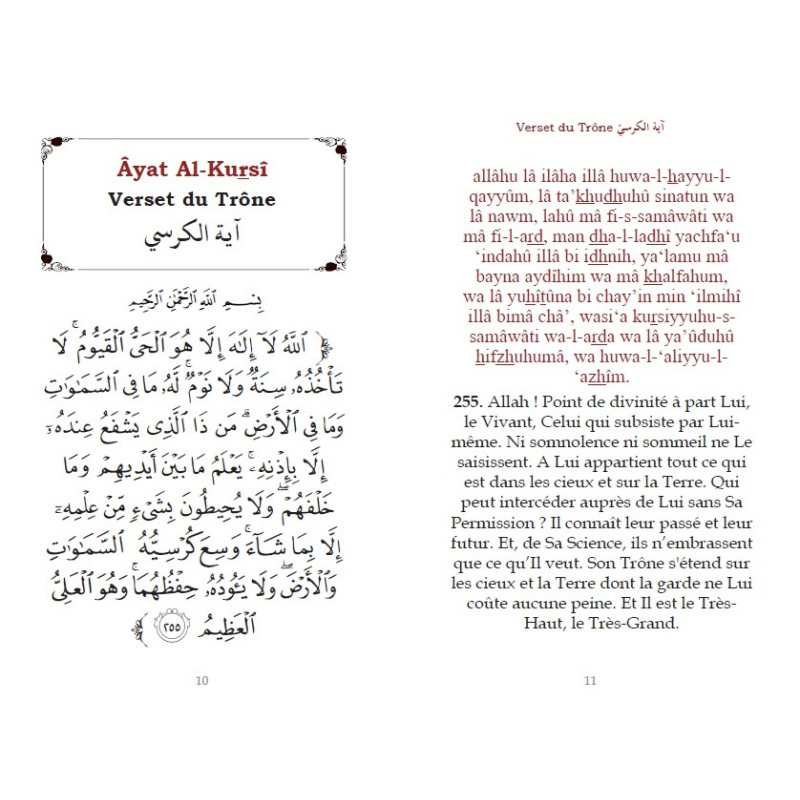 Âyat Al-Kursî
Verset du Trône
آية الكرسي
بِسْمِ ٱللَّهِ ٱلرَّحْمَٰنِ ٱلرَّحِيمِ
﴿ ٱللَّهُ لَآ إِلَٰهَ إِلَّا هُوَ ٱلْحَىُّ ٱلْقَيُّومُ ۚ لَا
تَأْخُذُهُۥ سِنَةٌ وَلَا نَوْمٌ ۚ لَّهُۥ مَا فِى ٱلسَّمَٰوَٰتِ
وَمَا فِى ٱلْأَرْضِ ۗ مَن ذَا ٱلَّذِى يَشْفَعُ عِندَهُۥٓ
إِلَّا بِإِذْنِهِۦ ۚ يَعْلَمُ مَا بَيْنَ أَيْدِيهِمْ وَمَا
خَلْفَهُمْ ۖ وَلَا يُحِيطُونَ بِشَىْءٍ مِّنْ عِلْمِهِۦٓ
إِلَّا بِمَا شَآءَ ۚ وَسِعَ كُرْسِيُّهُ ٱلسَّمَٰوَٰتِ
وَٱلْأَرْضَ ۖ وَلَا يَـُٔودُهُۥ حِفْظُهُمَا ۚ وَهُوَ ٱلْعَلِىُّ
ٱلْعَظِيمُ ٢٥٥ ﴾
10
Verset du Trône آية الكرسيّ
allâhu lâ ilâha illâ huwa-l-hayyu-l-
qayyûm, lâ ta’khudhuhû sinatun wa
lâ nawm, lahû mâ fi-s-samâwâti wa
mâ fi-l-ard, man dha-l-ladhî yachfa‘u
‘indahû illâ bi idhnih, ya‘lamu mâ
bayna aydîhim wa mâ khalfahum,
wa lâ yuhîtûna bi chay’in min ‘ilmihî
illâ bimâ châ’, wasi‘a kursiyyuhu-s-
samâwâti wa-l-arda wa lâ ya’ûduhû
hifzhuhumâ, wa huwa-l-‘aliyyu-l-
‘azhîm.
255. Allah ! Point de divinité à part Lui,
le Vivant, Celui qui subsiste par Lui-
même. Ni somnolence ni sommeil ne Le
saisissent. A Lui appartient tout ce qui
est dans les cieux et sur la Terre. Qui
peut intercéder auprès de Lui sans Sa
Permission ? Il connaît leur passé et leur
futur. Et, de Sa Science, ils n’embrassent
que ce qu’Il veut. Son Trône s'étend sur
les cieux et la Terre dont la garde ne Lui
coûte aucune peine. Et Il est le Très-
Haut, le Très-Grand.
11